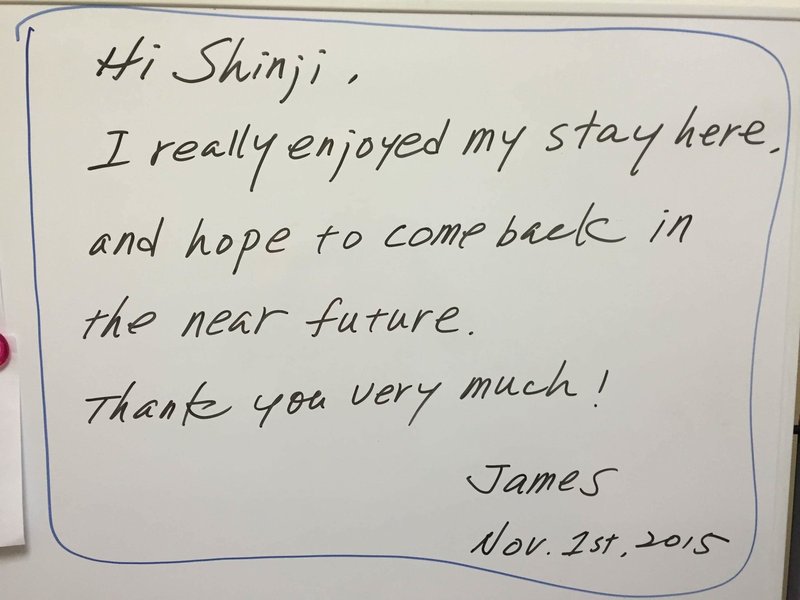 Hi Shinji,
I really enjoyed my stay here,
and hope to come back in
the near future.
Thank you very much!
James
Nov. 1st, 2015